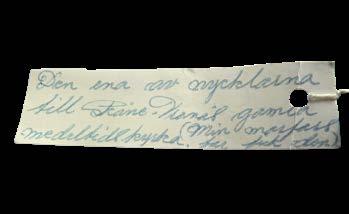 Den ena av nycklarna
till Skåne-Tranås gamla
medeltidskyrka. (Min morfars
far fick den)